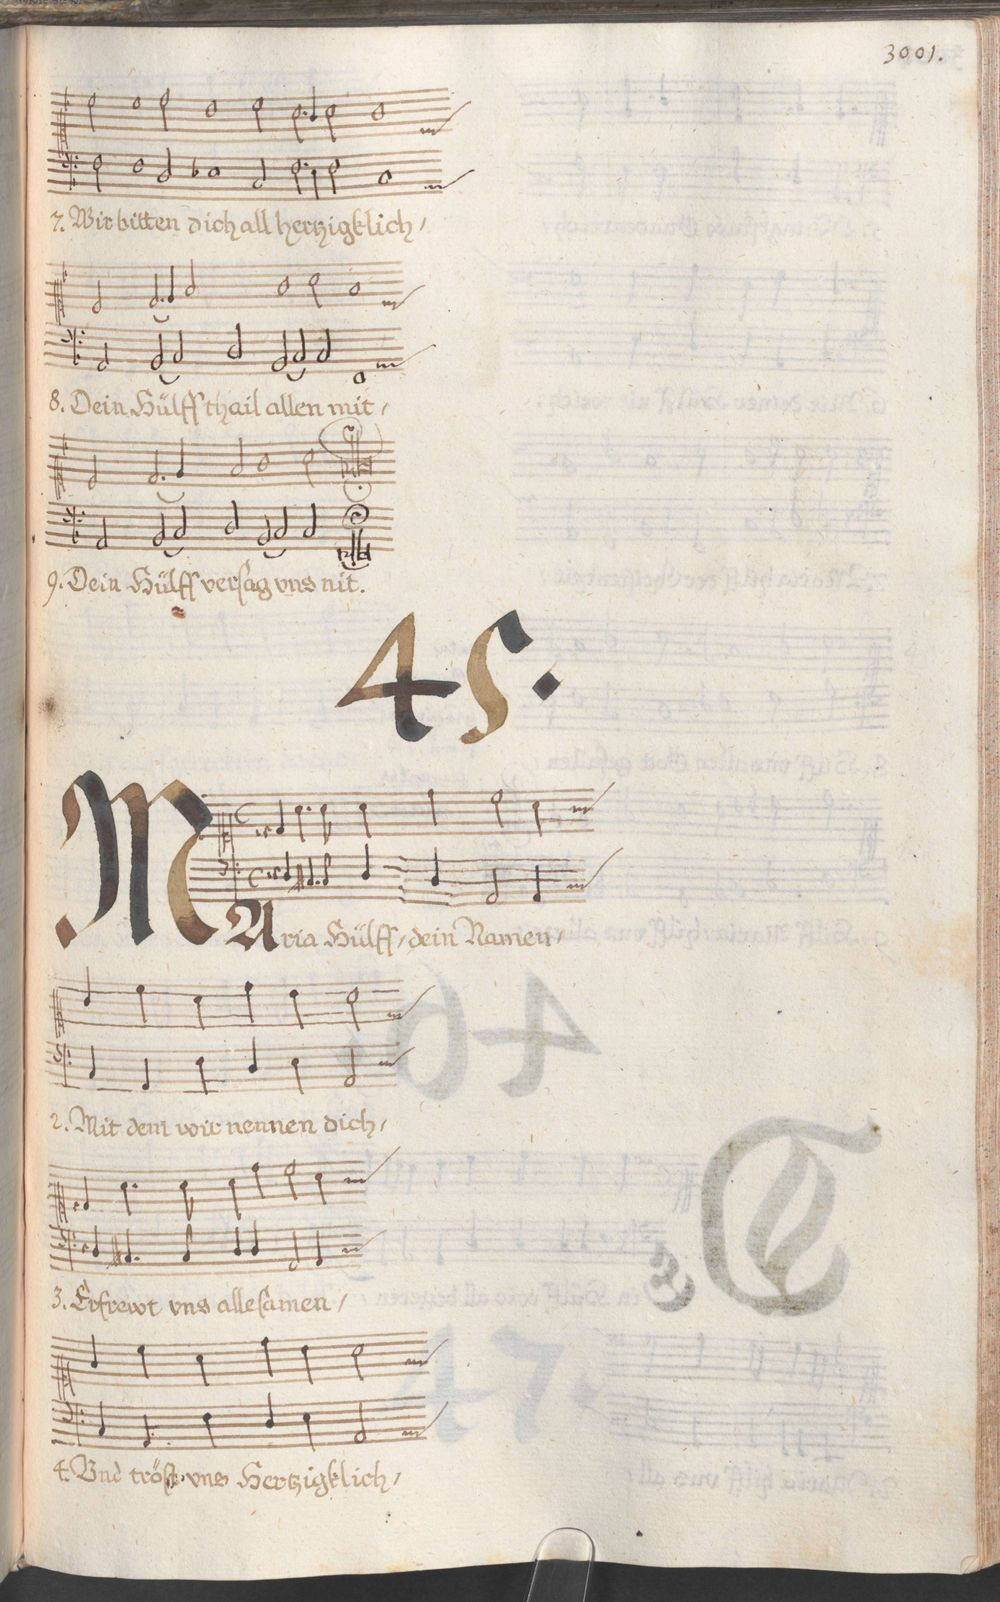 3001.
7. Wir bitten dich all hertzigklich /
8. Dein Hülff thail allen mit /
9. Dein Hülff versag vns nit.
45.
MAria Hülff / dein Namen /
2. Mit dem wir nennen dich /
3. Erfrewt vns alle samen /
4. Vnd tröst vns Hertzigklich /